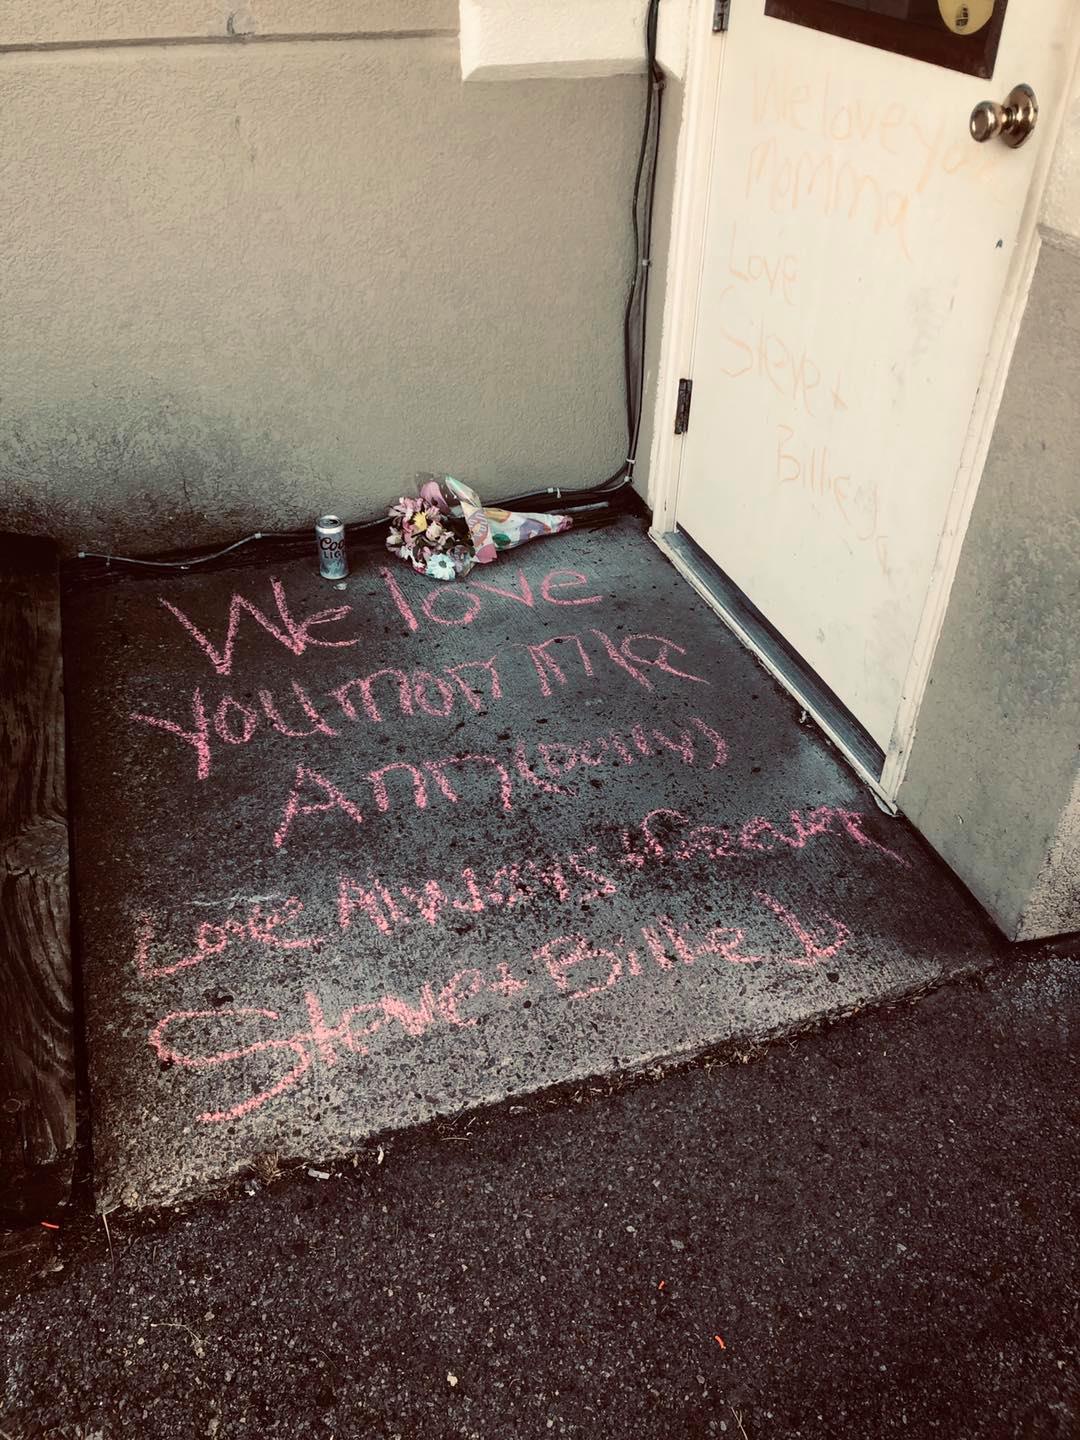 We love you
Momma
Love
Steve +
Billie
Coors
LIGHT
We love
you momma
Ann (
Love Always + Forever
Steve + Billie J